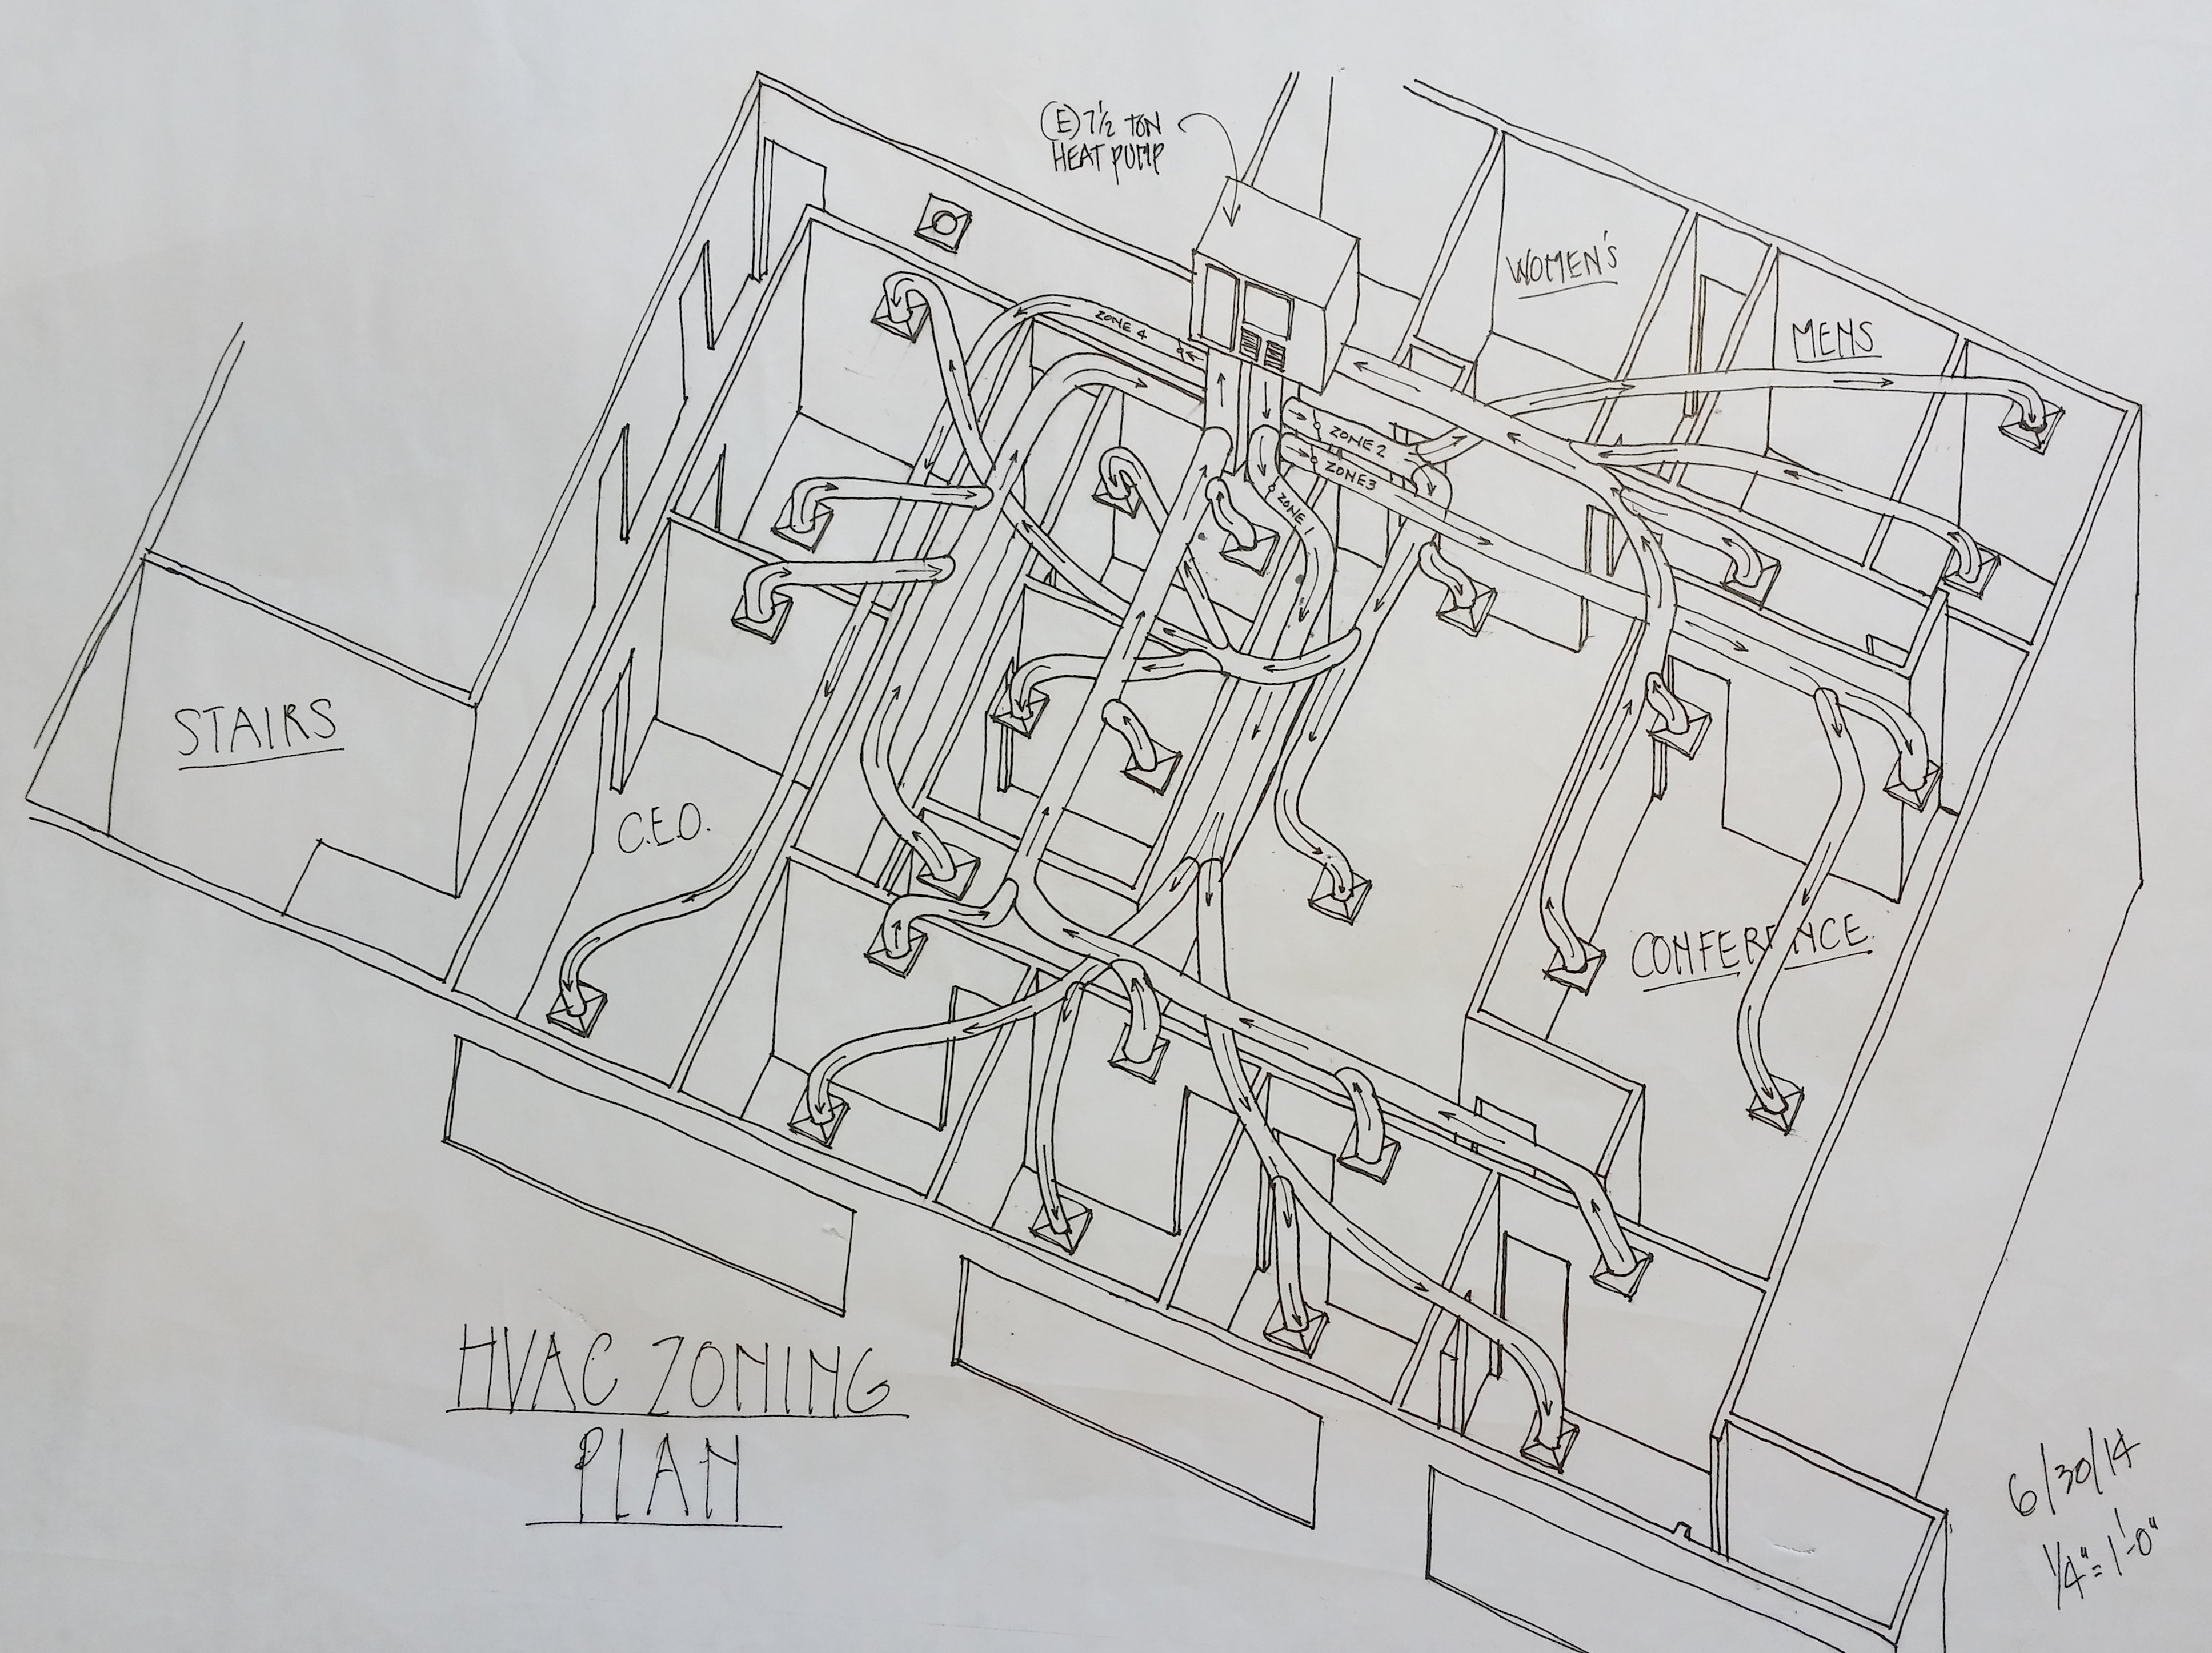 (E) 7 1/2 TON
HEAT PUMP
WOMEN'S
MENS
ZONE 4
ZONE 2
ZONE 3
ZONE 1
STAIRS
C.E.O.
CONFERENCE
HVAC ZONING
PLAN
6/30/14
1/4" = 1'-0"